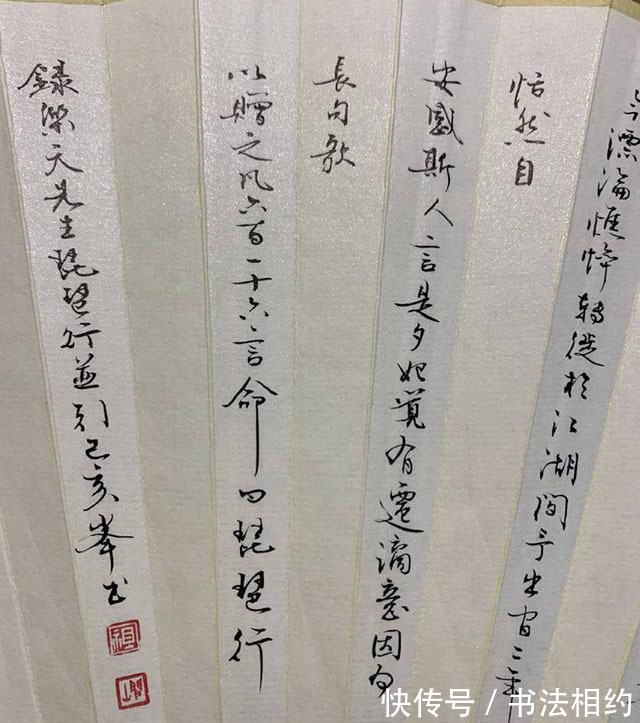 今漂淪憔悴轉徙於江湖間予出官二年
恬然自
安感斯人言是夕始覺有遷謫意因為
長句歌
以贈之凡六百一十六言命曰琵琶行
錄樂天先生琵琶行並引己亥峯书
快传号 / 书法相约